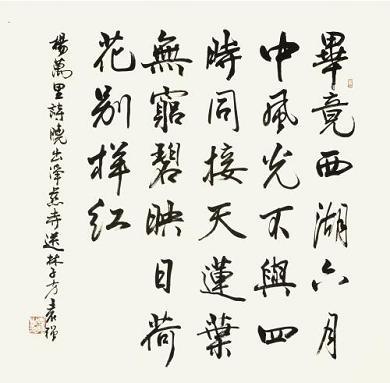 畢竟西湖六月
中風光不與四
時同接天蓮葉
無窮碧映日荷
花别樣紅
楊萬里詩曉出淨慈寺送林子方